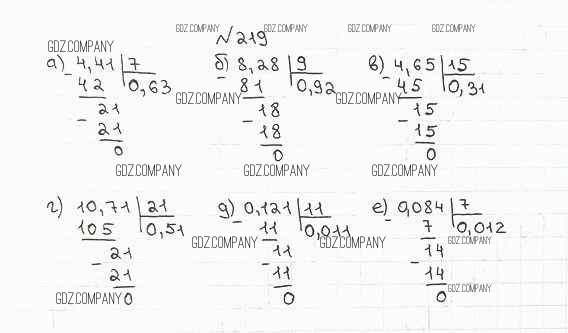 GDZ.COMPANY GDZ.COMPANY GDZ.COMPANY GDZ.COMPANY
№ 219
GDZ.COMPANY
а) 4,41 | 7 б) 8,28 | 9 в) 4,65 | 15
- 42 0,63 - 81 0,92 - 45 0,31
GDZ.COMPANY GDZ.COMPANY
21 18 15
- 21 - 18 - 15
0 0 0
GDZ.COMPANY GDZ.COMPANY GDZ.COMPANY
г) 10,71 | 21 д) 0,121 | 11 е) 0,084 | 7
105 0,51 - 11 0,011 - 7 0,012
GDZ.COMPANY GDZ.COMPANY GDZ.COMPANY
21 11 14
- 21 - 11 - 14
GDZ.COMPANY 0 0 0 GDZ.COMPANY